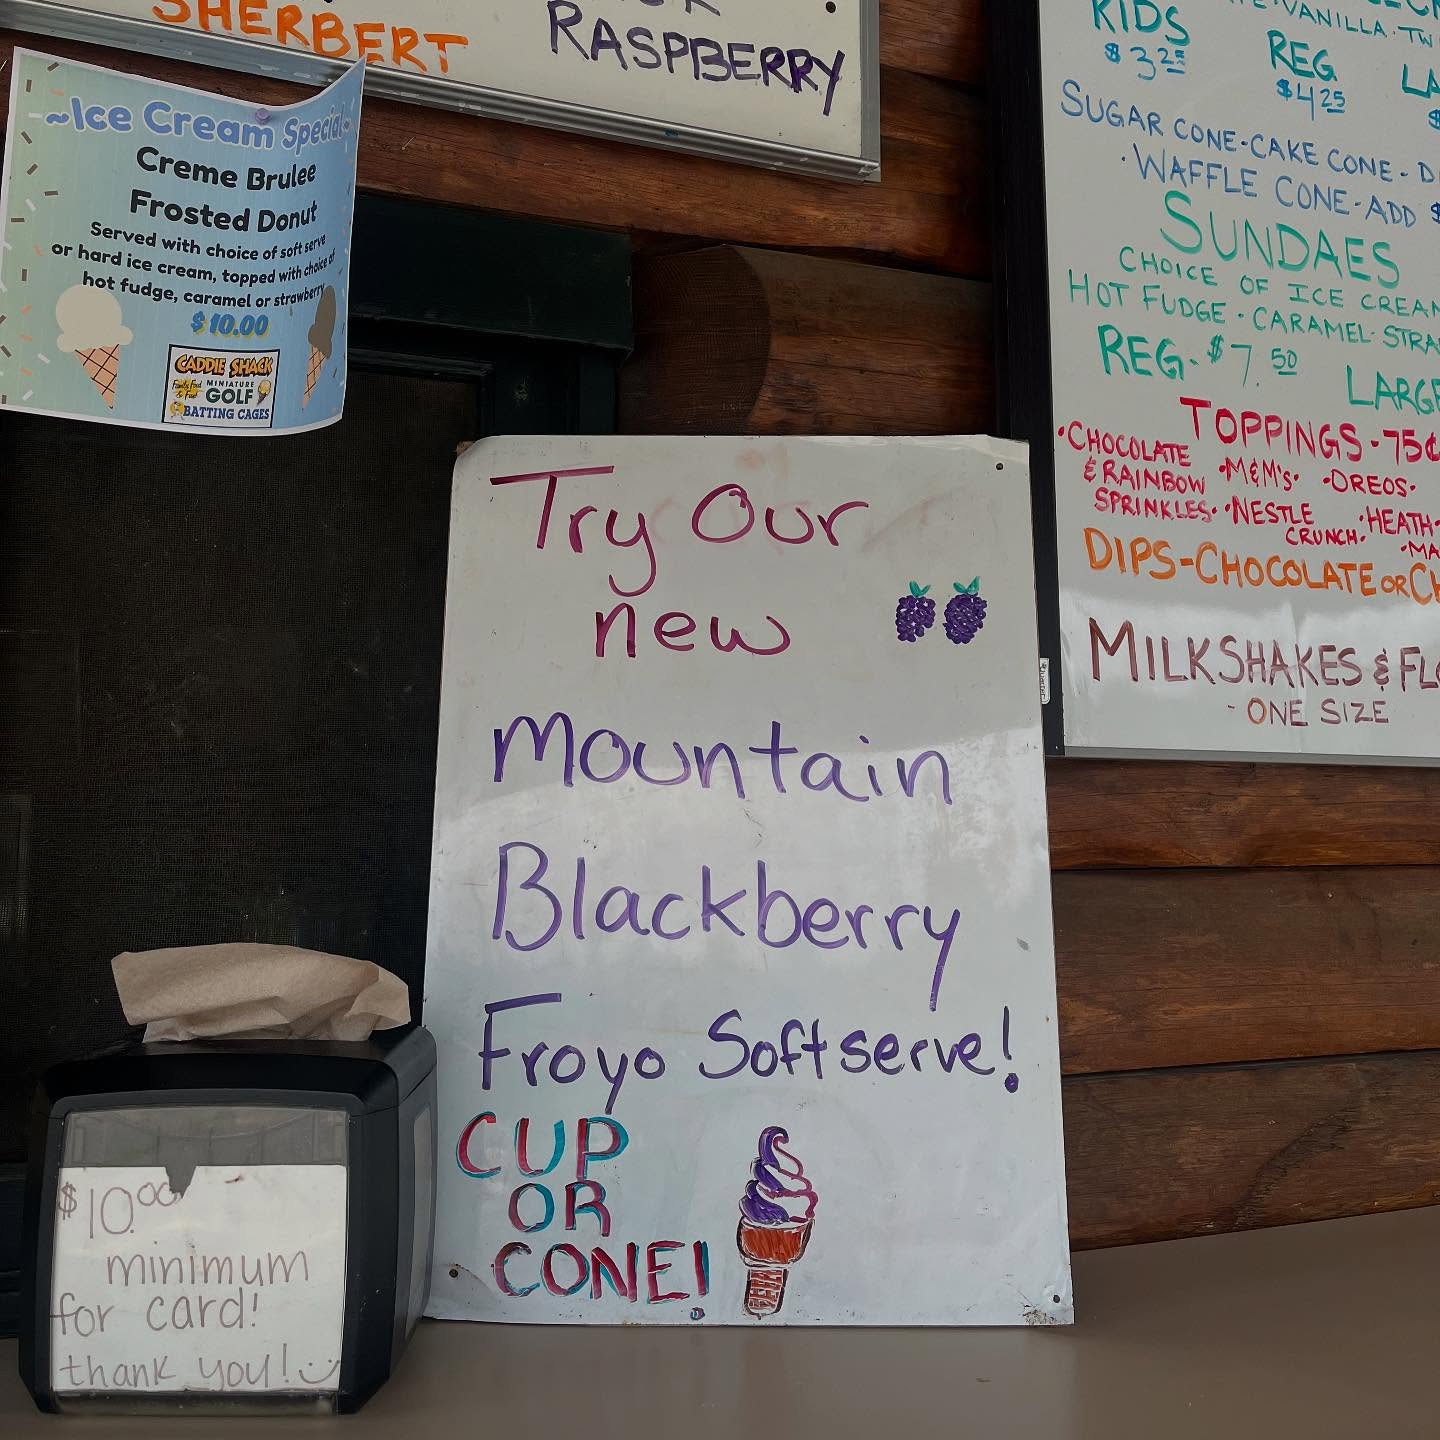 SHERBERT
RASPBERRY
~Ice Cream Special~
Creme Brulee
Frosted Donut
Served with choice of soft serve
or hard ice cream, topped with choice of
hot fudge, caramel or strawberry
$10.00
CADDIE SHACK
Family Food
& Fun
MINIATURE
GOLF
BATTING CAGES
Try Our
new
Mountain
Blackberry
Froyo Softserve!
CUP
OR
CONE!
$10.00
minimum
for card!
thank you!
VANILLA
KIDS
$3.25
REG
$4.25
SUGAR CONE • CAKE CONE •
• WAFFLE CONE - ADD
SUNDAES
CHOICE OF ICE CREAM
HOT FUDGE • CARAMEL •
REG - $7.50
LARGE
TOPPINGS - 75¢
• CHOCOLATE
& RAINBOW
SPRINKLES •
• M&M's •
• OREOS •
• NESTLE
CRUNCH •
• HEATH
DIPS - CHOCOLATE OR
MILKSHAKES &
- ONE SIZE